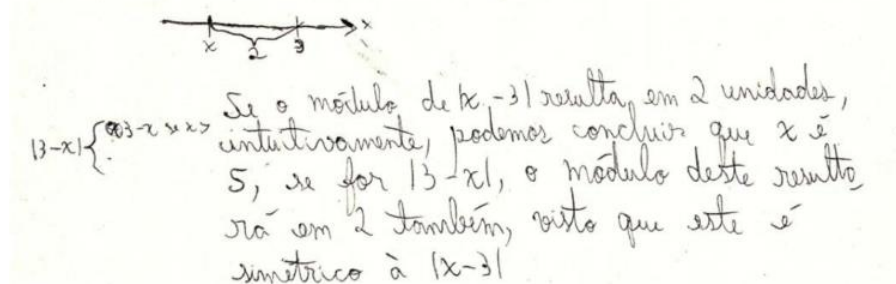 x
x 2 3
Se o módulo de |x-3| resulta em 2 unidades,
|3-x| { 3-x se x >
intuitivamente, podemos concluir que x é
5, se for |3-x|, o módulo deste resulta
rá em 2 também, visto que este é
simétrico à |x-3|